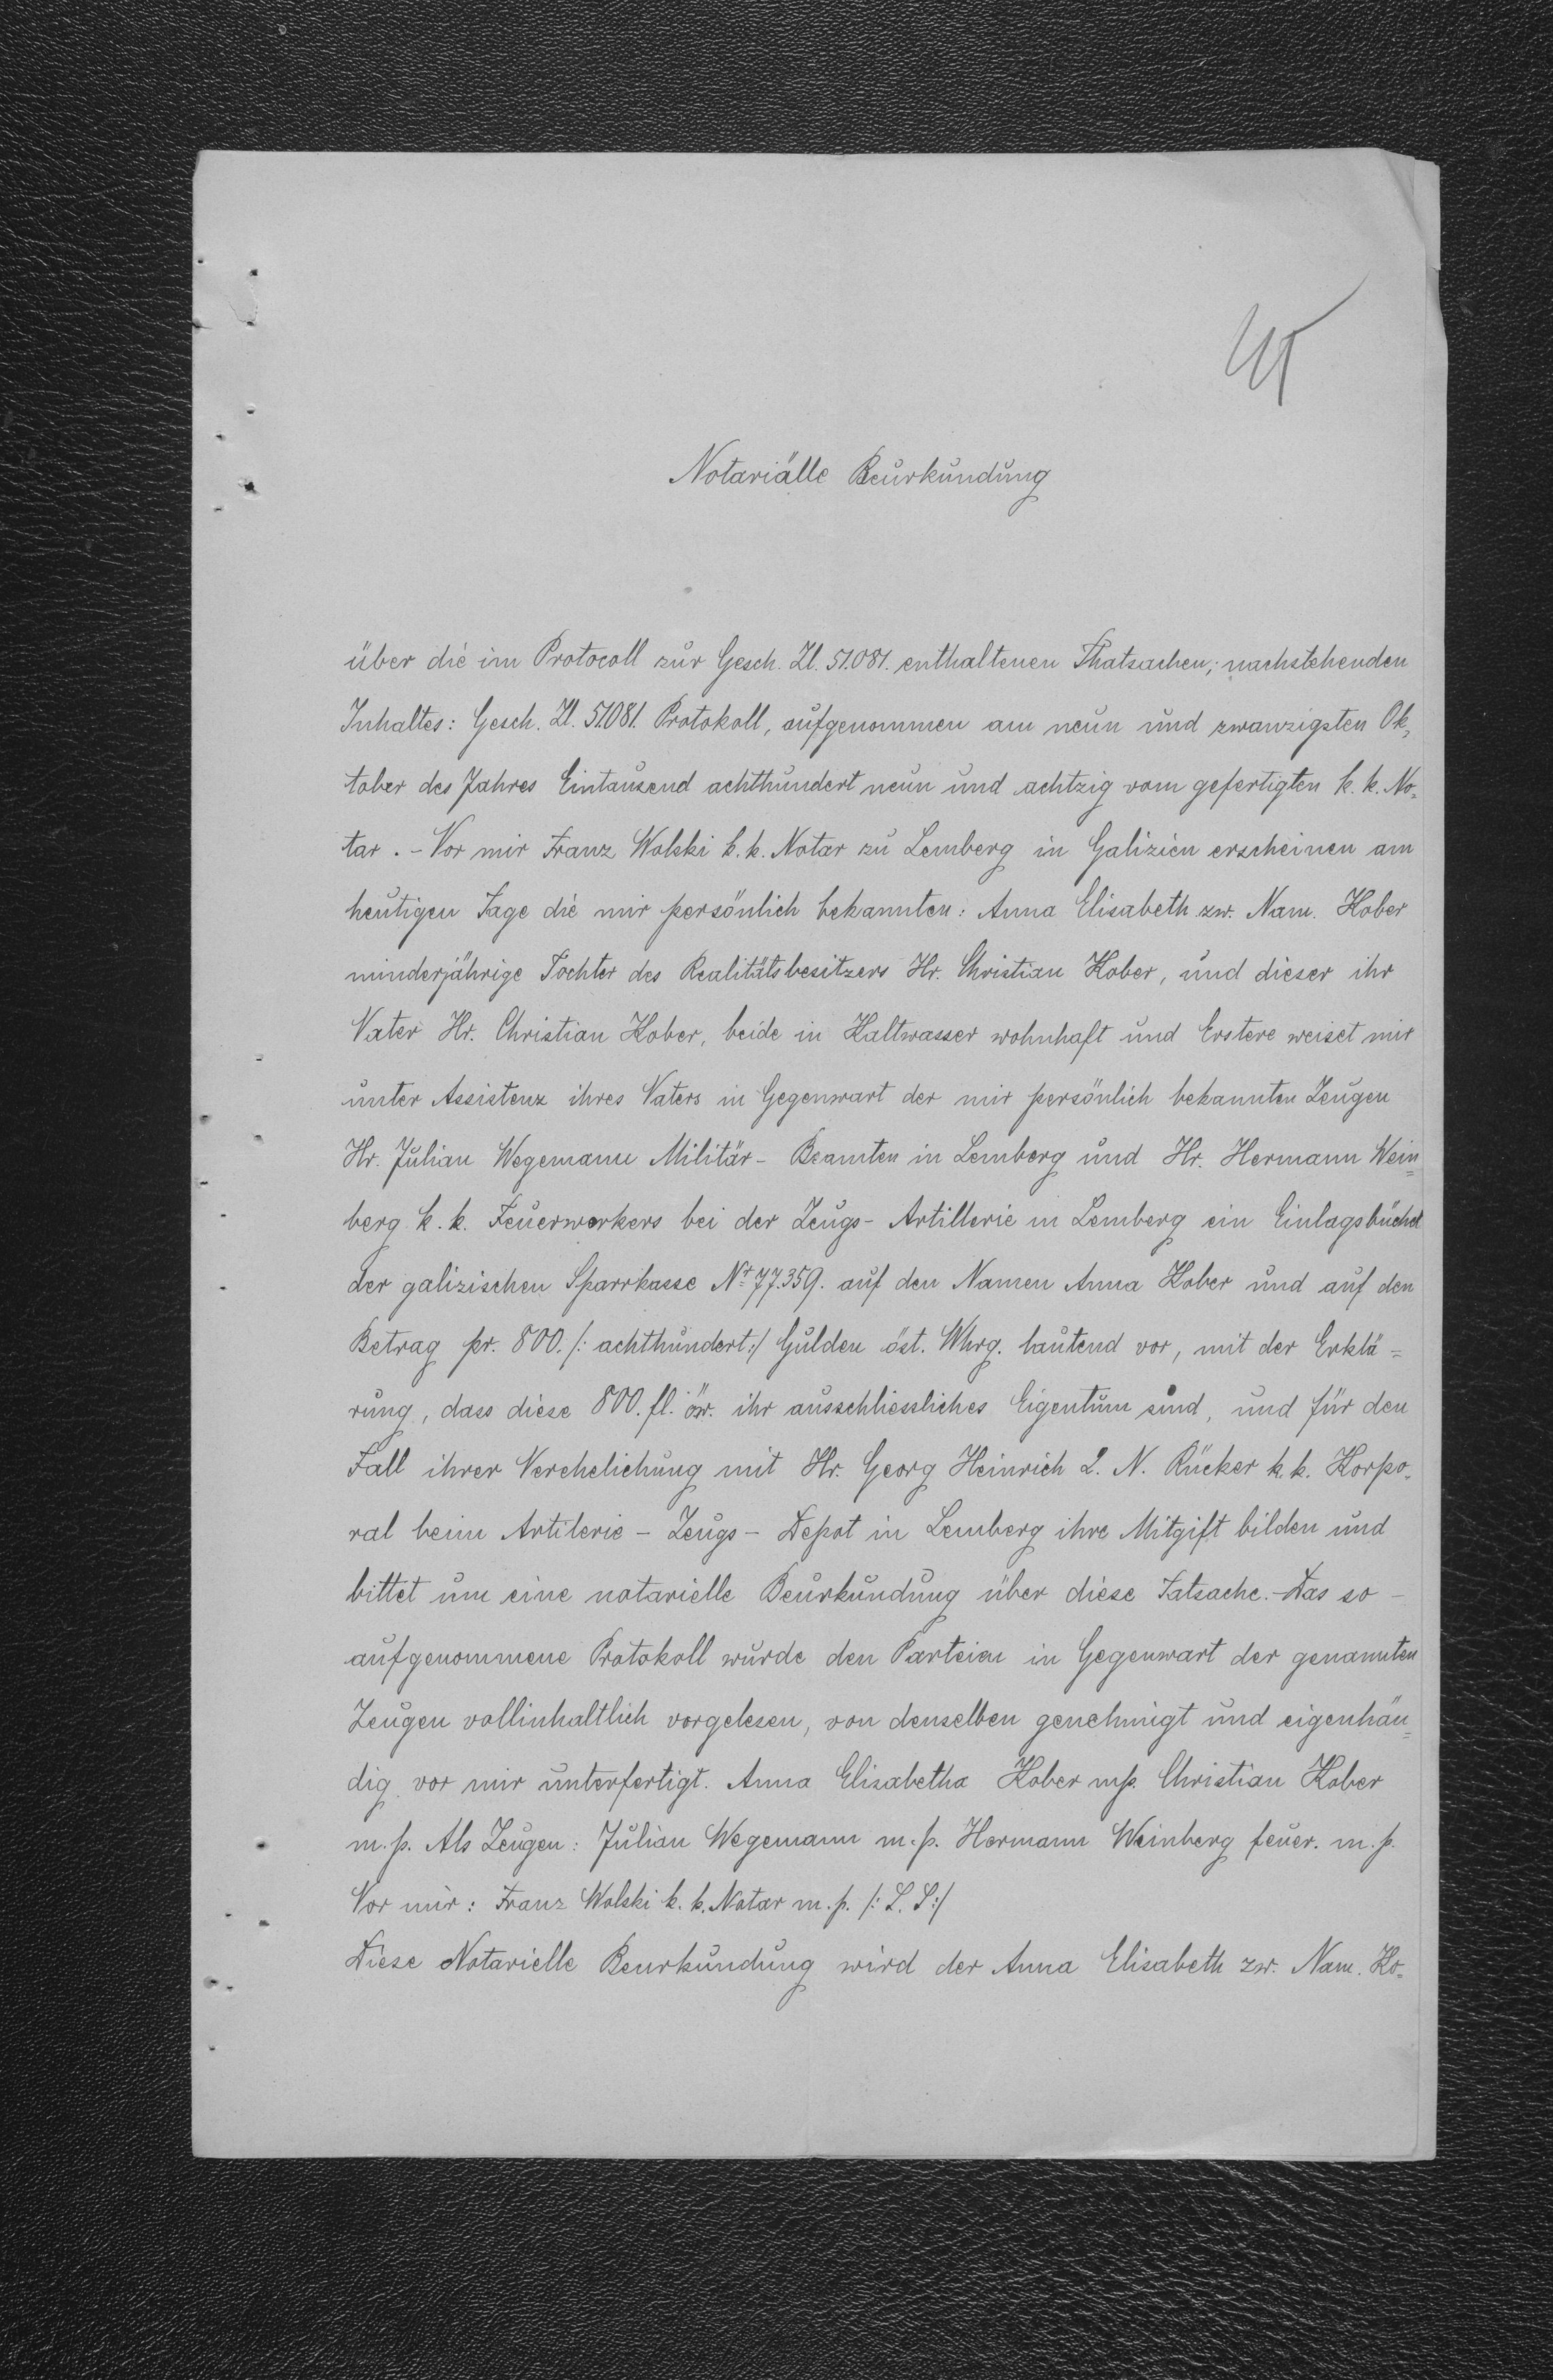 Notariälle Beurkundung
über die im Protocoll zur Gesch. Zl. 51.081. enthaltenen Thatsachen, nachstehenden
Inhaltes: Gesch. Zl. 51081. Protokoll, aufgenommen am neun und zwanzigsten Ok-
tober des Jahres Eintausend achthundert neun und achtzig vom gefertigten k. k. No-
tar. - Vor mir Franz Wolski k. k. Notar zu Lemberg in Galizien erscheinen am
heutigen Tage die mir persönlich bekannten: Anna Elisabeth zw. Nam. Kober
minderjährige Tochter des Realitätsbesitzers Hr. Christian Kober, und dieser ihr
Vater Hr. Christian Kober, beide in Kaltwasser wohnhaft und Erstere weiset mir
unter Assistenz ihres Vaters in Gegenwart der mir persönlich bekannten Zeugen
Hr. Julian Wegemann Militär - Beamten in Lemberg und Hr. Hermann Wein=
berg k. k. Feuerwerkers bei der Zeugs - Artillerie in Lemberg ein Einlagsbüchel
der galizischen Sparrkasse Nr 77.359. auf den Namen Anna Kober und auf den
Betrag pr. 800. /: achthundert :/ Gulden öst. Whrg. lautend vor, mit der Erklä=
rung, dass diese 800. fl. öw. ihr ausschliessliches Eigentum sind, und für den
Fall ihrer Verehelichung mit Hr. Georg Heinrich 2. N. Rücker k. k. Korpo-
ral beim Artilerie - Zeugs - Depot in Lemberg ihre Mitgift bilden und
bittet um eine notarielle Beurkundung über diese Tatsache. - Das so -
aufgenommene Protokoll wurde den Parteien in Gegenwart der genannten
Zeugen vollinhaltlich vorgelesen, von denselben genehmigt und eigenhän=
dig vor mir unterfertigt. Anna Elisabetha Kober mp. Christian Kober
m. p. Als Zeugen: Julian Wegemann m. p. Hermann Weinberg feuer. m. p.
Vor mir: Franz Wolski k. k. Notar m. p. /: L. S :/
Diese Notarielle Beurkundung wird der Anna Elisabeth zw. Nam. Ko=